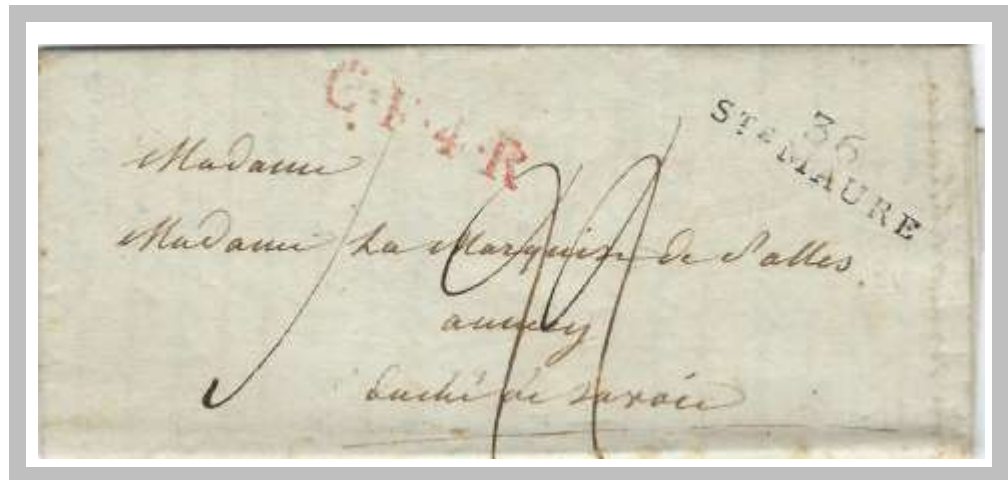 C·F·4·R
36
STE MAURE
Madame
Madame La Marquise de Salles
annecy
Duché de Savoie